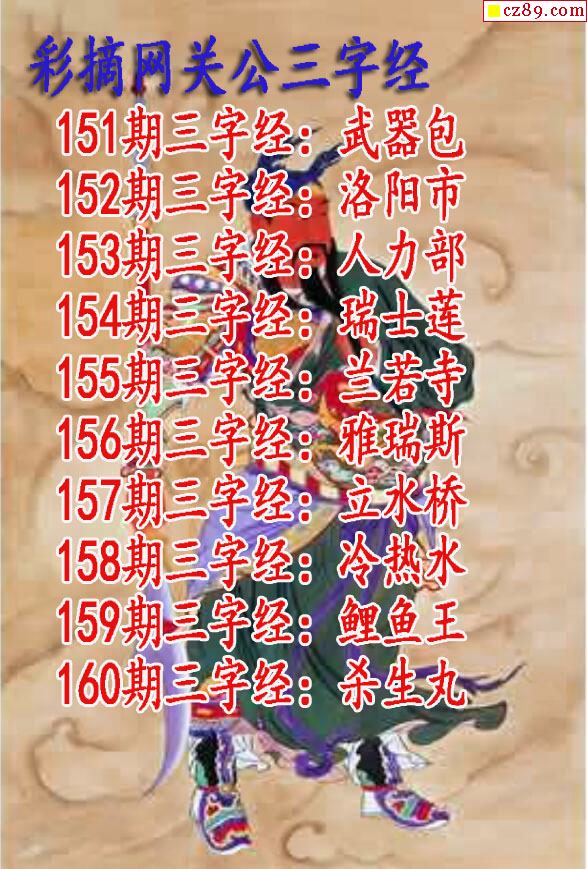 cz89.com
彩摘网关公三字经
151期三字经：武器包
152期三字经：洛阳市
153期三字经：人力部
154期三字经：瑞士莲
155期三字经：兰若寺
156期三字经：雅瑞斯
157期三字经：立水桥
158期三字经：冷热水
159期三字经：鲤鱼王
160期三字经：杀生丸